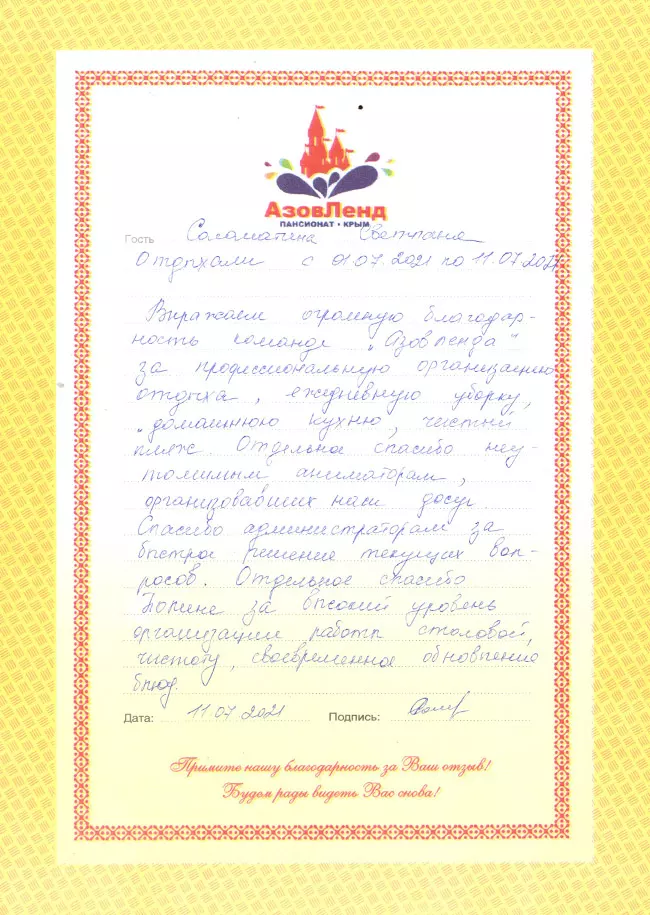 АзовЛенд
ПАНСИОНАТ • КРЫМ
Гость Соломатина Светлана
Отдыхали с 01.07.2021 по 11.07.2021
Выражаем огромную благодар-
ность команде "Азовленда"
за профессиональную организацию
отдыха, ежедневную уборку,
"домашнюю кухню, чистый
пляж. Отдельное спасибо неу-
томимым аниматорам,
организовавших наш досуг.
Спасибо администраторам за
быстрое решение текущих воп-
росов. Отдельное спасибо
за высокий уровень
организации работы столовой,
чистоту, своевременное обновление
блюд.
Дата: 11.07.2021 Подпись:
Примите нашу благодарность за Ваш отзыв!
Будем рады видеть Вас снова!